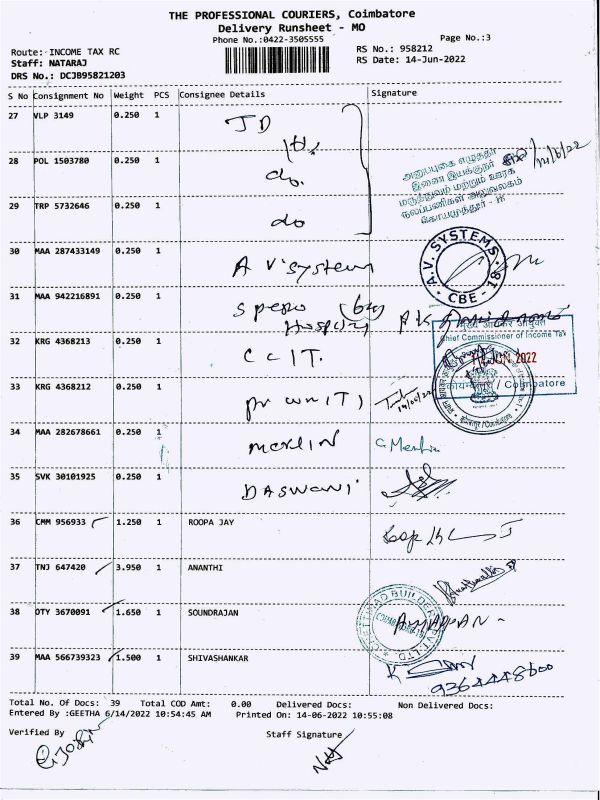 THE PROFESSIONAL COURIERS, Coimbatore
Delivery Runsheet - MO
Phone No.:0422-3505555
Page No.:3
Route: INCOME TAX RC
RS No.: 958212
Staff: NATARAJ
RS Date: 14-Jun-2022
DRS No.: DCJB95821203
S No Consignment No Weight PCS Consignee Details Signature
27 VLP 3149 0.250 1 JD
28 POL 1503780 0.250 1 do
அனுப்புகை எழுத்தர்
இணை இயக்குநர்
மருத்துவம் மற்றும் ஊரக
நலப்பணிகள் அலுவலகம்
கோயமுத்தூர் - 18
14/6/22
29 TRP 5732646 0.250 1 do
30 MAA 287433149 0.250 1 A V System
A.V. SYSTEMS
CBE - 18
31 MAA 942216891 0.250 1
Chief Commissioner of Income Tax
JUN 2022
/ Coimbatore
32 KRG 4368213 0.250 1 CCIT.
33 KRG 4368212 0.250 1
34 MAA 282678661 0.250 1 merlin
35 SVK 30101925 0.250 1 DASWANI
36 CMM 956933 1.250 1 ROOPA JAY
37 TNJ 647420 3.950 1 ANANTHI
38 OTY 3670091 1.650 1 SOUNDRAJAN
39 MAA 566739323 1.500 1 SHIVASHANKAR
9364448600
Total No. Of Docs: 39 Total COD Amt: 0.00 Delivered Docs: Non Delivered Docs:
Entered By :GEETHA 6/14/2022 10:54:45 AM Printed On: 14-06-2022 10:55:08
Verified By Staff Signature